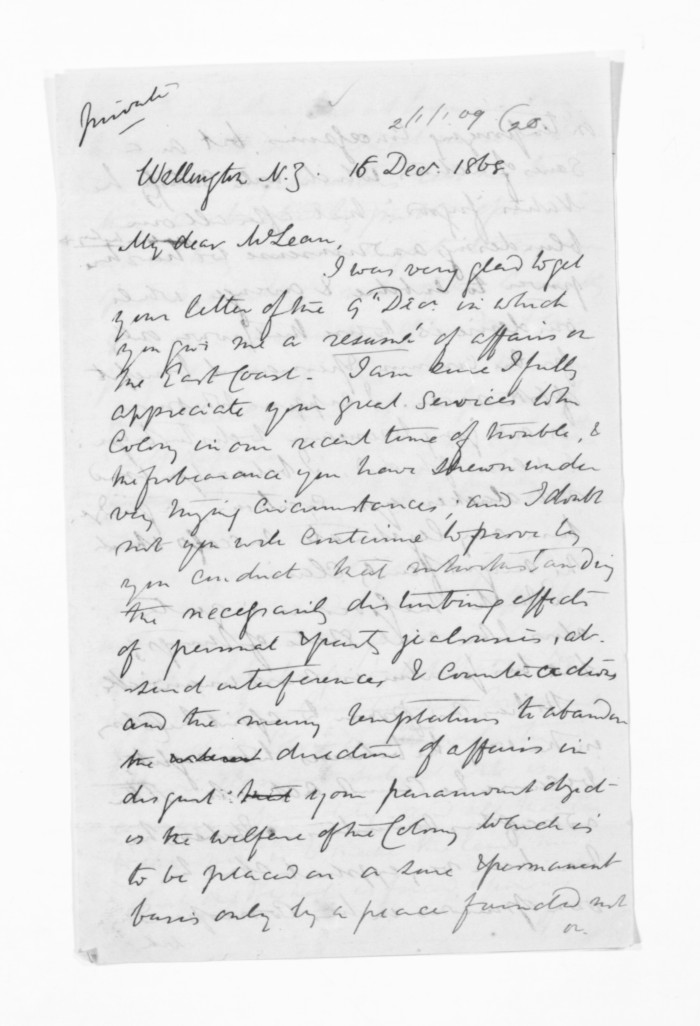 Private
2/1/109 (20.
Wellington N.Z. 15 Decr. 1868
My dear McLean,
I was very glad to get
your letter of the 9th Decr. in which
you give me a resumé of affairs on
the East Coast. I am sure I fully
appreciate your great services to the
Colony in our recent time of trouble, &
the forbearance you have shewn under
very trying circumstances; and I doubt
not you will continue to prove by
you conduct that notwithstanding
the necessarily disturbing effects
of personal & party jealousies, ab-
surd interferences & counteractions
and the many temptations to abandon
the direction of affairs in
disgust: that your paramount object
is the welfare of the Colony which is
to be placed on a sure & permanent
basis only by a peace founded not
on